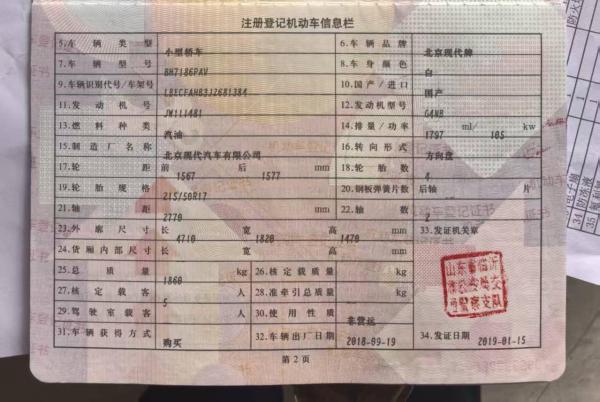 注册登记机动车信息栏
5.车辆类型 小型轿车 6.车辆品牌 北京现代牌
7.车辆型号 BH7186PAV 8.车身颜色 白
9.车辆识别代号/车架号 LBECFAHB3JZ681384 10.国产/进口 国产
11.发动机号 JW111481 12.发动机型号 G4NB
13.燃料种类 汽油 14.排量/功率 1797 ml/ 105 kw
15.制造厂名称 北京现代汽车有限公司 16.转向形式 方向盘
17.轮距 前 1567 后 1577 mm 18.轮胎数 4
19.轮胎规格 215/50R17 20.钢板弹簧片数 后轴 片
21.轴距 2770 mm 22.轴数 2
23.外廓尺寸 长 4710 宽 1820 高 1470 mm 33.发证机关章
24.货厢内部尺寸 长 宽 高 mm
25.总质量 1860 kg 26.核定载质量 kg
27.核定载客 5 人 28.准牵引总质量 kg
29.驾驶室载客 人 30.使用性质 非营运
31.车辆获得方式 购买 32.车辆出厂日期 2018-09-19 34.发证日期 2019-01-15
山东省临沂
市公安局交
通警察支队
第2页